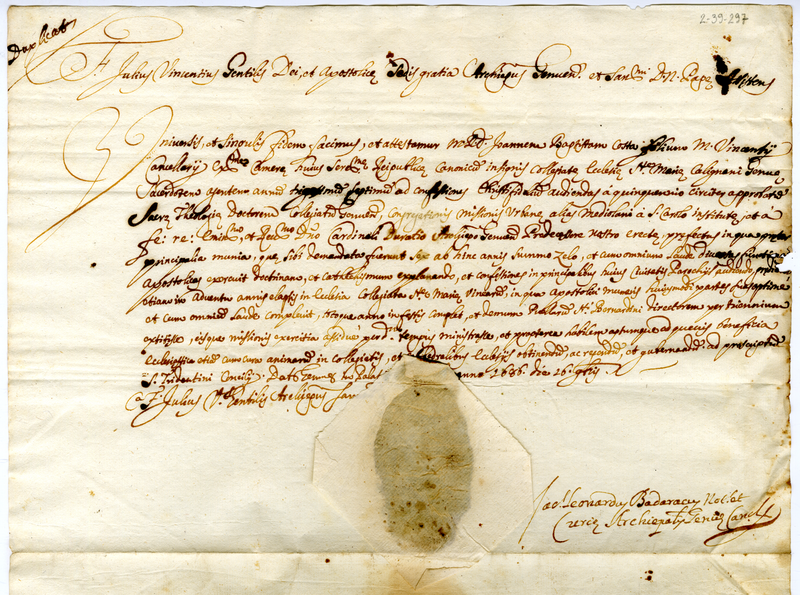 2-39-297
Duplicat
Fr. Julius Vincentius Gentilis Dei, et Apostolicæ Sedis gratia Archiepus Genuen. et San.mi D.N. Papæ Assistens
Universis, et Singulis fidem facimus, et attestamur Joannem Baptistam Costa filium M. Vincentij
Cancellarij Cameræ huius Seren.mæ Reipublicæ Canonicum insignis Collegiatæ Ecclesiæ S.tæ Mariæ Genuæ
Sacerdotem agentem annum trigesimum septimum ad confessiones Christifidelium audiendas à quinquennio circiter approbatum
Sacræ Theologiæ Doctorem Collegiatum Genuen. Congregationis Missionis Urbanæ alias Mediolani à S. Carolo institutæ, et à
fe: re: Emin.mo et Rev.mo Dno Cardinali Duratio Archiepo Genuen. Predecessore Nostro erectæ, prefectum in qua
principalia munia, quæ sibi demandata fuerunt sex ab hinc annis summo zelo, et cum omnium laude
Apostolicas exercuit doctrinam, et Catechismum explanando, et confessiones in principalibus huius Civitatis Parochijs audiendo,
etiam in adventu anni elapsi in Ecclesia Collegiata S.tæ Mariæ Vinearum, in qua Apostolici muneris huiusmodi partes
et cum omnium laude complevit, et demum S.ti Bernardini directorem per triennium
extitisse, eisque missionis exercitia assidue tempus ministrasse, et propterea habilem aptumque ad quæcumque beneficia
Ecclesiastica etiam cum cura animarum in Collegiatis, et Cathedralibus Ecclesijs obtinendum, ac regendum, et gubernandum ad prescriptum
S. Tridentini Concilij. Dat. Genuæ anno 1686. die 26.
Fr. Julius V. Gentilis Archiepus
Jac. Leonardus Badaracus Not. et
Curiæ Archiepalis Genuæ Canc.